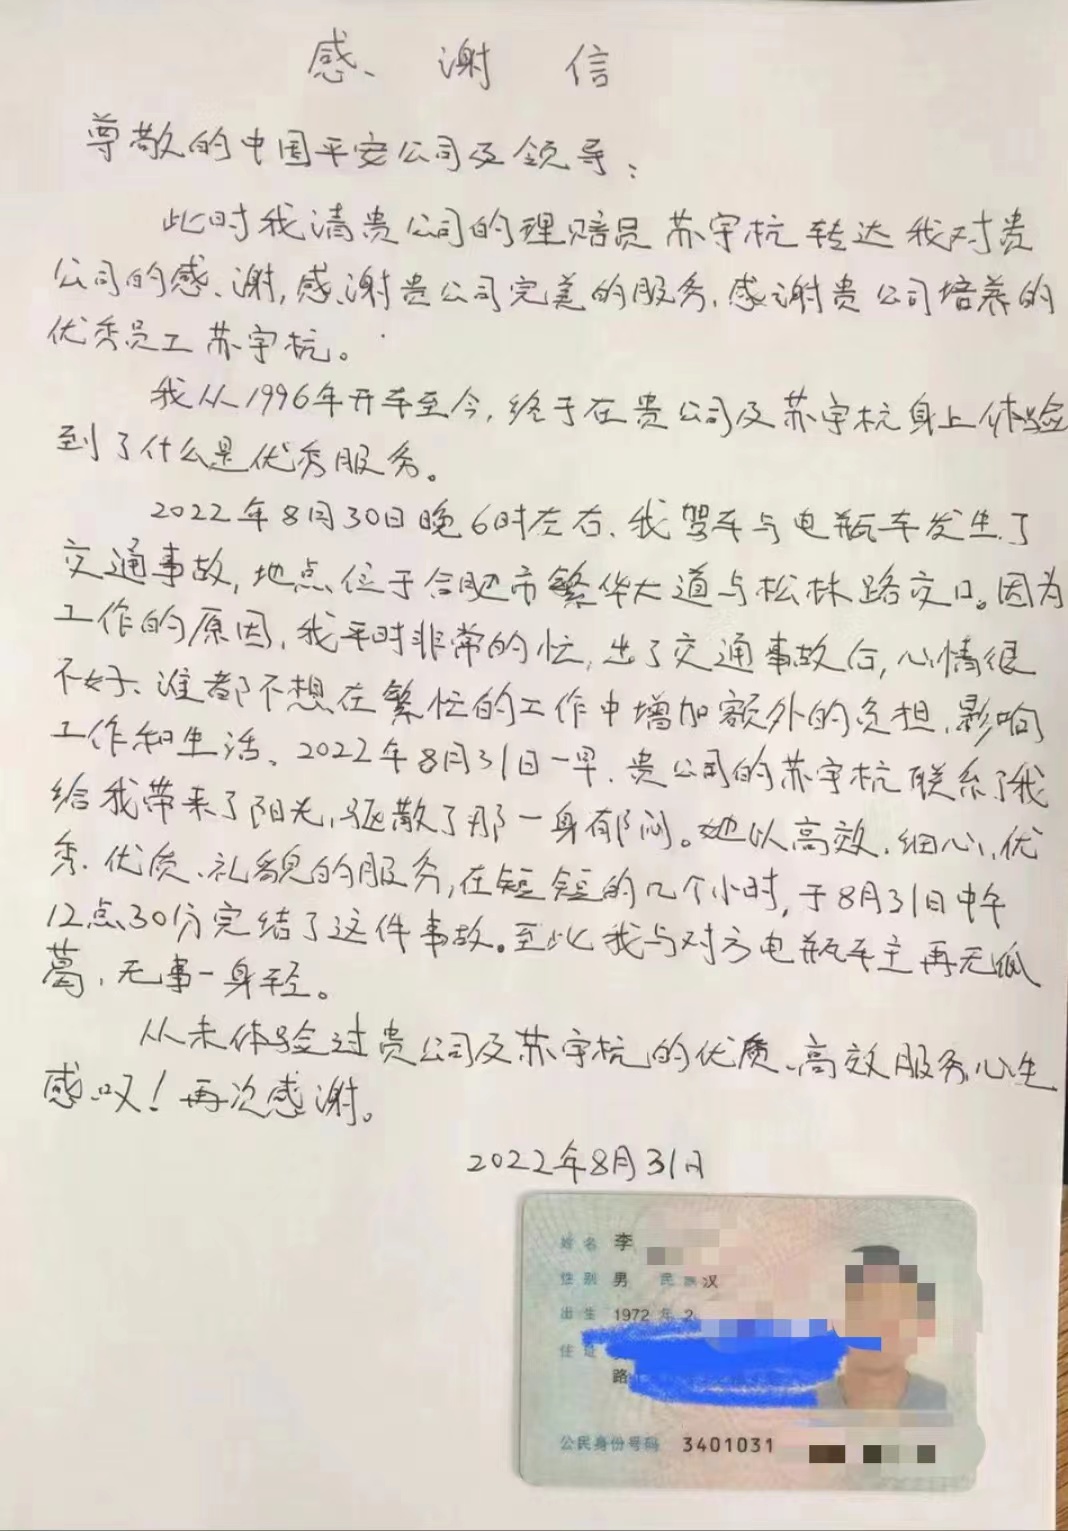 感谢信
尊敬的中国平安公司及领导:
此时我请贵公司的理赔员苏宇杭转达我对贵
公司的感谢,感谢贵公司完美的服务、感谢贵公司培养的
优秀员工苏宇杭。
我从1996年开车至今,终于在贵公司及苏宇杭身上体验
到了什么是优秀服务。
2022年8月30日晚6时左右、我驾车与电瓶车发生了
交通事故,地点位于合肥市繁华大道与松林路交口。因为
工作的原因,我平时非常的忙,出了交通事故后,心情很
不好、谁都不想在繁忙的工作中增加额外的负担,影响
工作和生活。2022年8月31日一早、贵公司的苏宇杭联系了我
给我带来了阳光,驱散了那一身郁闷。她以高效、细心、优
秀、优质、礼貌的服务,在短短的几个小时,于8月31日中午
12点30分完结了这件事故。至此我与对方电瓶车主再无瓜
葛,无事一身轻。
从未体验过贵公司及苏宇杭的优质、高效服务心生
感叹!再次感谢。
2022年8月31日
姓名 李
性别 男 民族 汉
出生 1972 年 2
住址
路
公民身份号码 3401031